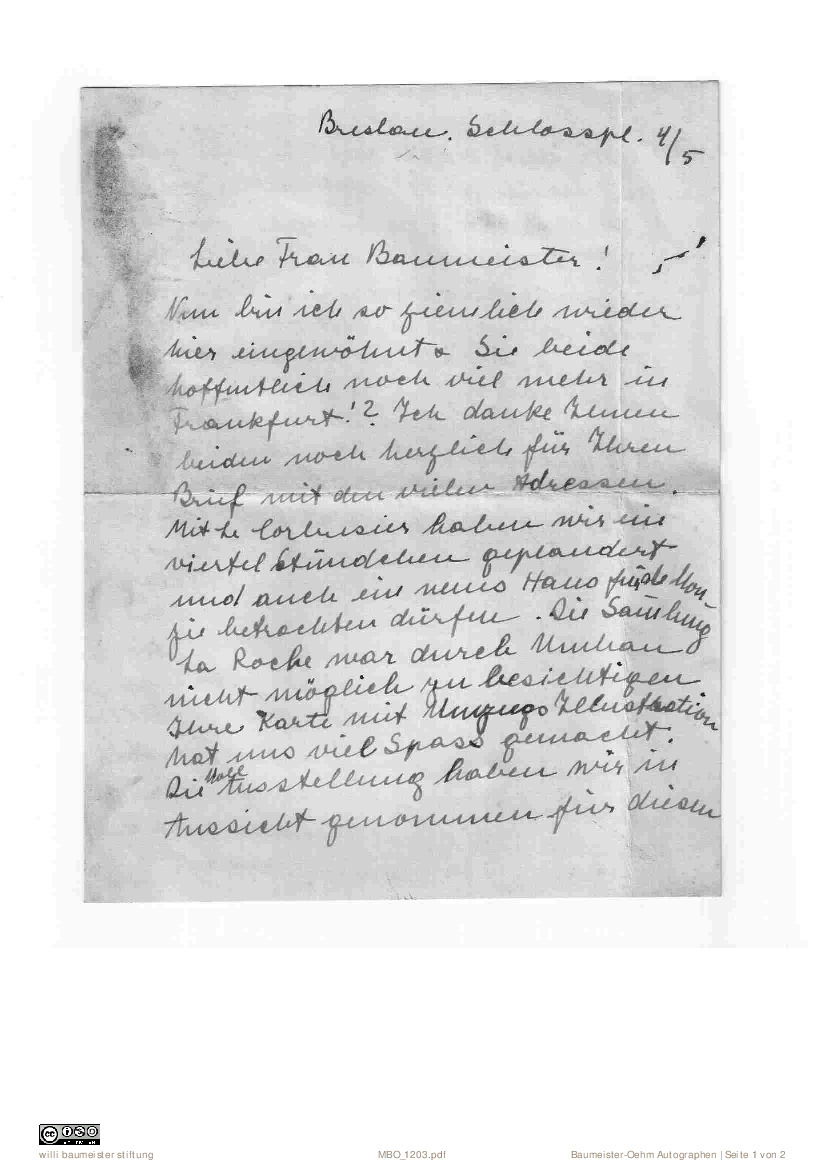 Breslau. Schlosspl. 4/5
Liebe Frau Baumeister!
Nun bin ich so ziemlich wieder
hier eingewöhnt & Sie beide
hoffentlich noch viel mehr in
Frankfurt!? Ich danke Ihnen
beiden noch herzlich für Ihren
Brief mit den vielen Adressen.
Mit Le Corbusier haben wir ein
viertel Stündchen geplaudert
und auch ein neues Haus für de Mon-
zie betrachten dürfen. Die Samlung
La Roche war durch Umbau
nicht möglich zu besichtigen
Ihre Karte mit Umzugs Illustration
hat uns viel Spass gemacht.
Die Ausstellung haben wir in
Aussicht genommen für diesen
willi baumeister stiftung
MBO_1203.pdf
Baumeister-Oehm Autographen | Seite 1 von 2